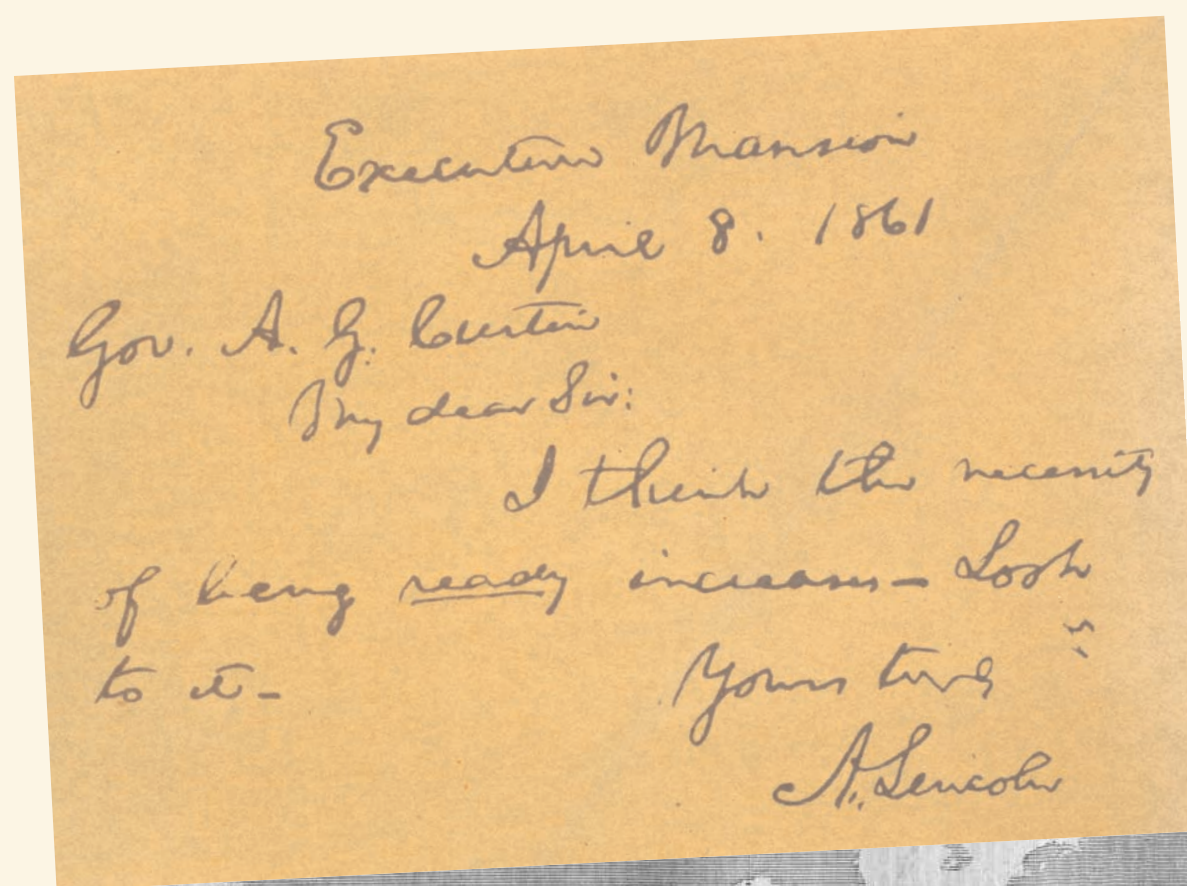 Executive Mansion
April 8. 1861
Gov. A. G. Curtin
My dear Sir:
I think the necessity
of being ready increases— Look
to it—
Yours truly
A. Lincoln